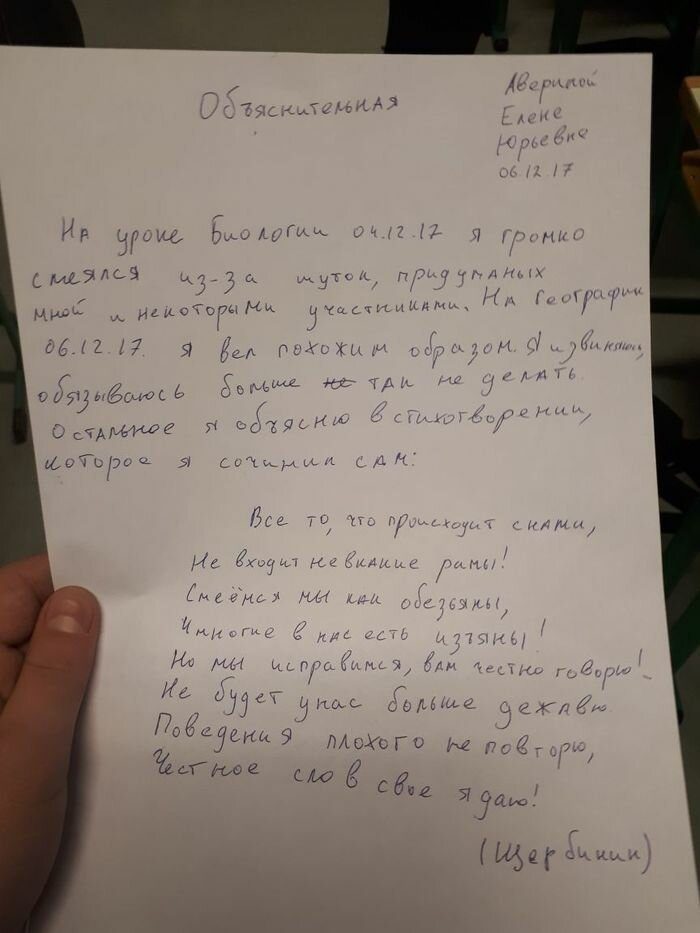 Объяснительная
Авериной
Елене
Юрьевне
06.12.17
На уроке Биологии 04.12.17 я громко
смеялся из-за шуток, придуманых
мной и некоторыми участниками. На географии
06.12.17. я вел похожим образом. Я извиняюсь,
обязываюсь больше не так не делать.
Остальное я объясню в стихотворении,
которое я сочинил сам:
Все то, что происходит снами,
Не входит невкакие рамы!
Смеёмся мы как обезьяны,
И многие в нас есть изъяны!
Но мы исправимся, вам честно говорю!
Не будет унас больше дежавю.
Поведения плохого не повторю,
Честное слов свое я даю!
(Щербинин)